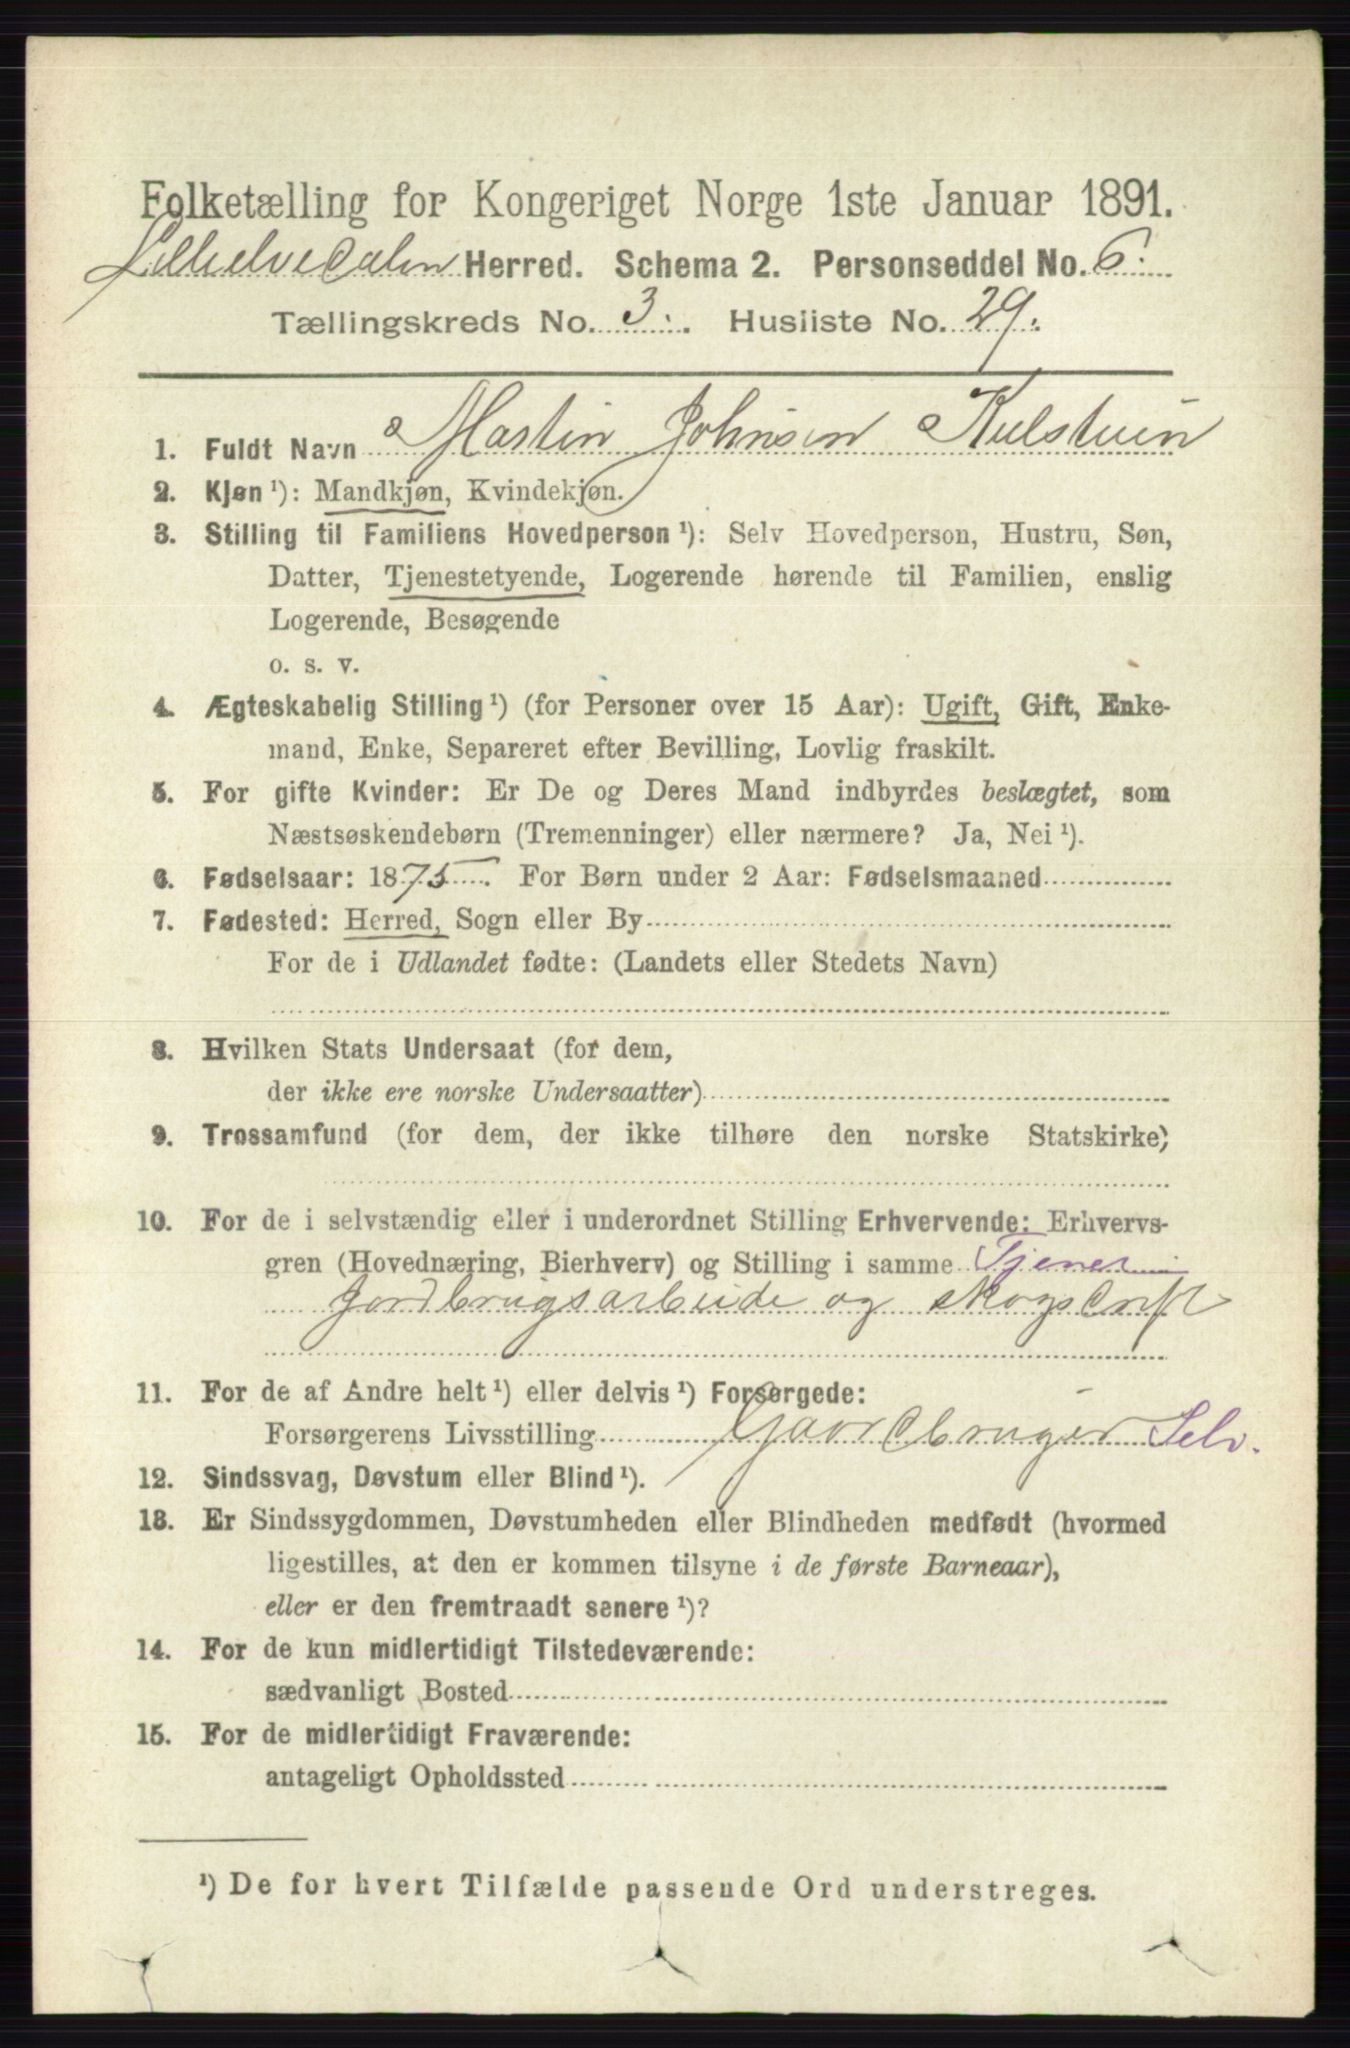 Folketælling for Kongeriget Norge 1ste Januar 1891.
Lilleelvedalen Herred. Schema 2. Personseddel No. 6.
Tællingskreds No. 3. Husliste No. 29.
1. Fuldt Navn Martin Johnsen Kulstuin
2. Kjøn ¹): Mandkjøn, Kvindekjøn.
3. Stilling til Familiens Hovedperson ¹): Selv Hovedperson, Hustru, Søn,
Datter, Tjenestetyende, Logerende hørende til Familien, enslig
Logerende, Besøgende
o. s. v.
4. Ægteskabelig Stilling ¹) (for Personer over 15 Aar): Ugift, Gift, Enke-
mand, Enke, Separeret efter Bevilling, Lovlig fraskilt.
5. For gifte Kvinder: Er De og Deres Mand indbyrdes beslægtet, som
Næstsøskendebørn (Tremenninger) eller nærmere? Ja, Nei ¹).
6. Fødselsaar: 1875. For Børn under 2 Aar: Fødselsmaaned
7. Fødested: Herred, Sogn eller By
For de i Udlandet fødte: (Landets eller Stedets Navn)
8. Hvilken Stats Undersaat (for dem,
der ikke ere norske Undersaatter)
9. Trossamfund (for dem, der ikke tilhøre den norske Statskirke)
10. For de i selvstændig eller i underordnet Stilling Erhvervende: Erhvervs-
gren (Hovednæring, Bierhverv) og Stilling i samme Tjener
Jordbrugsarbeide og skogsdrift
11. For de af Andre helt ¹) eller delvis ¹) Forsørgede:
Forsørgerens Livsstilling Gaardbruger Selv.
12. Sindssvag, Døvstum eller Blind ¹).
13. Er Sindssygdommen, Døvstumheden eller Blindheden medfødt (hvormed
ligestilles, at den er kommen tilsyne i de første Barneaar),
eller er den fremtraadt senere ¹)?
14. For de kun midlertidigt Tilstedeværende:
sædvanligt Bosted
15. For de midlertidigt Fraværende:
antageligt Opholdssted
¹) De for hvert Tilfælde passende Ord understreges.